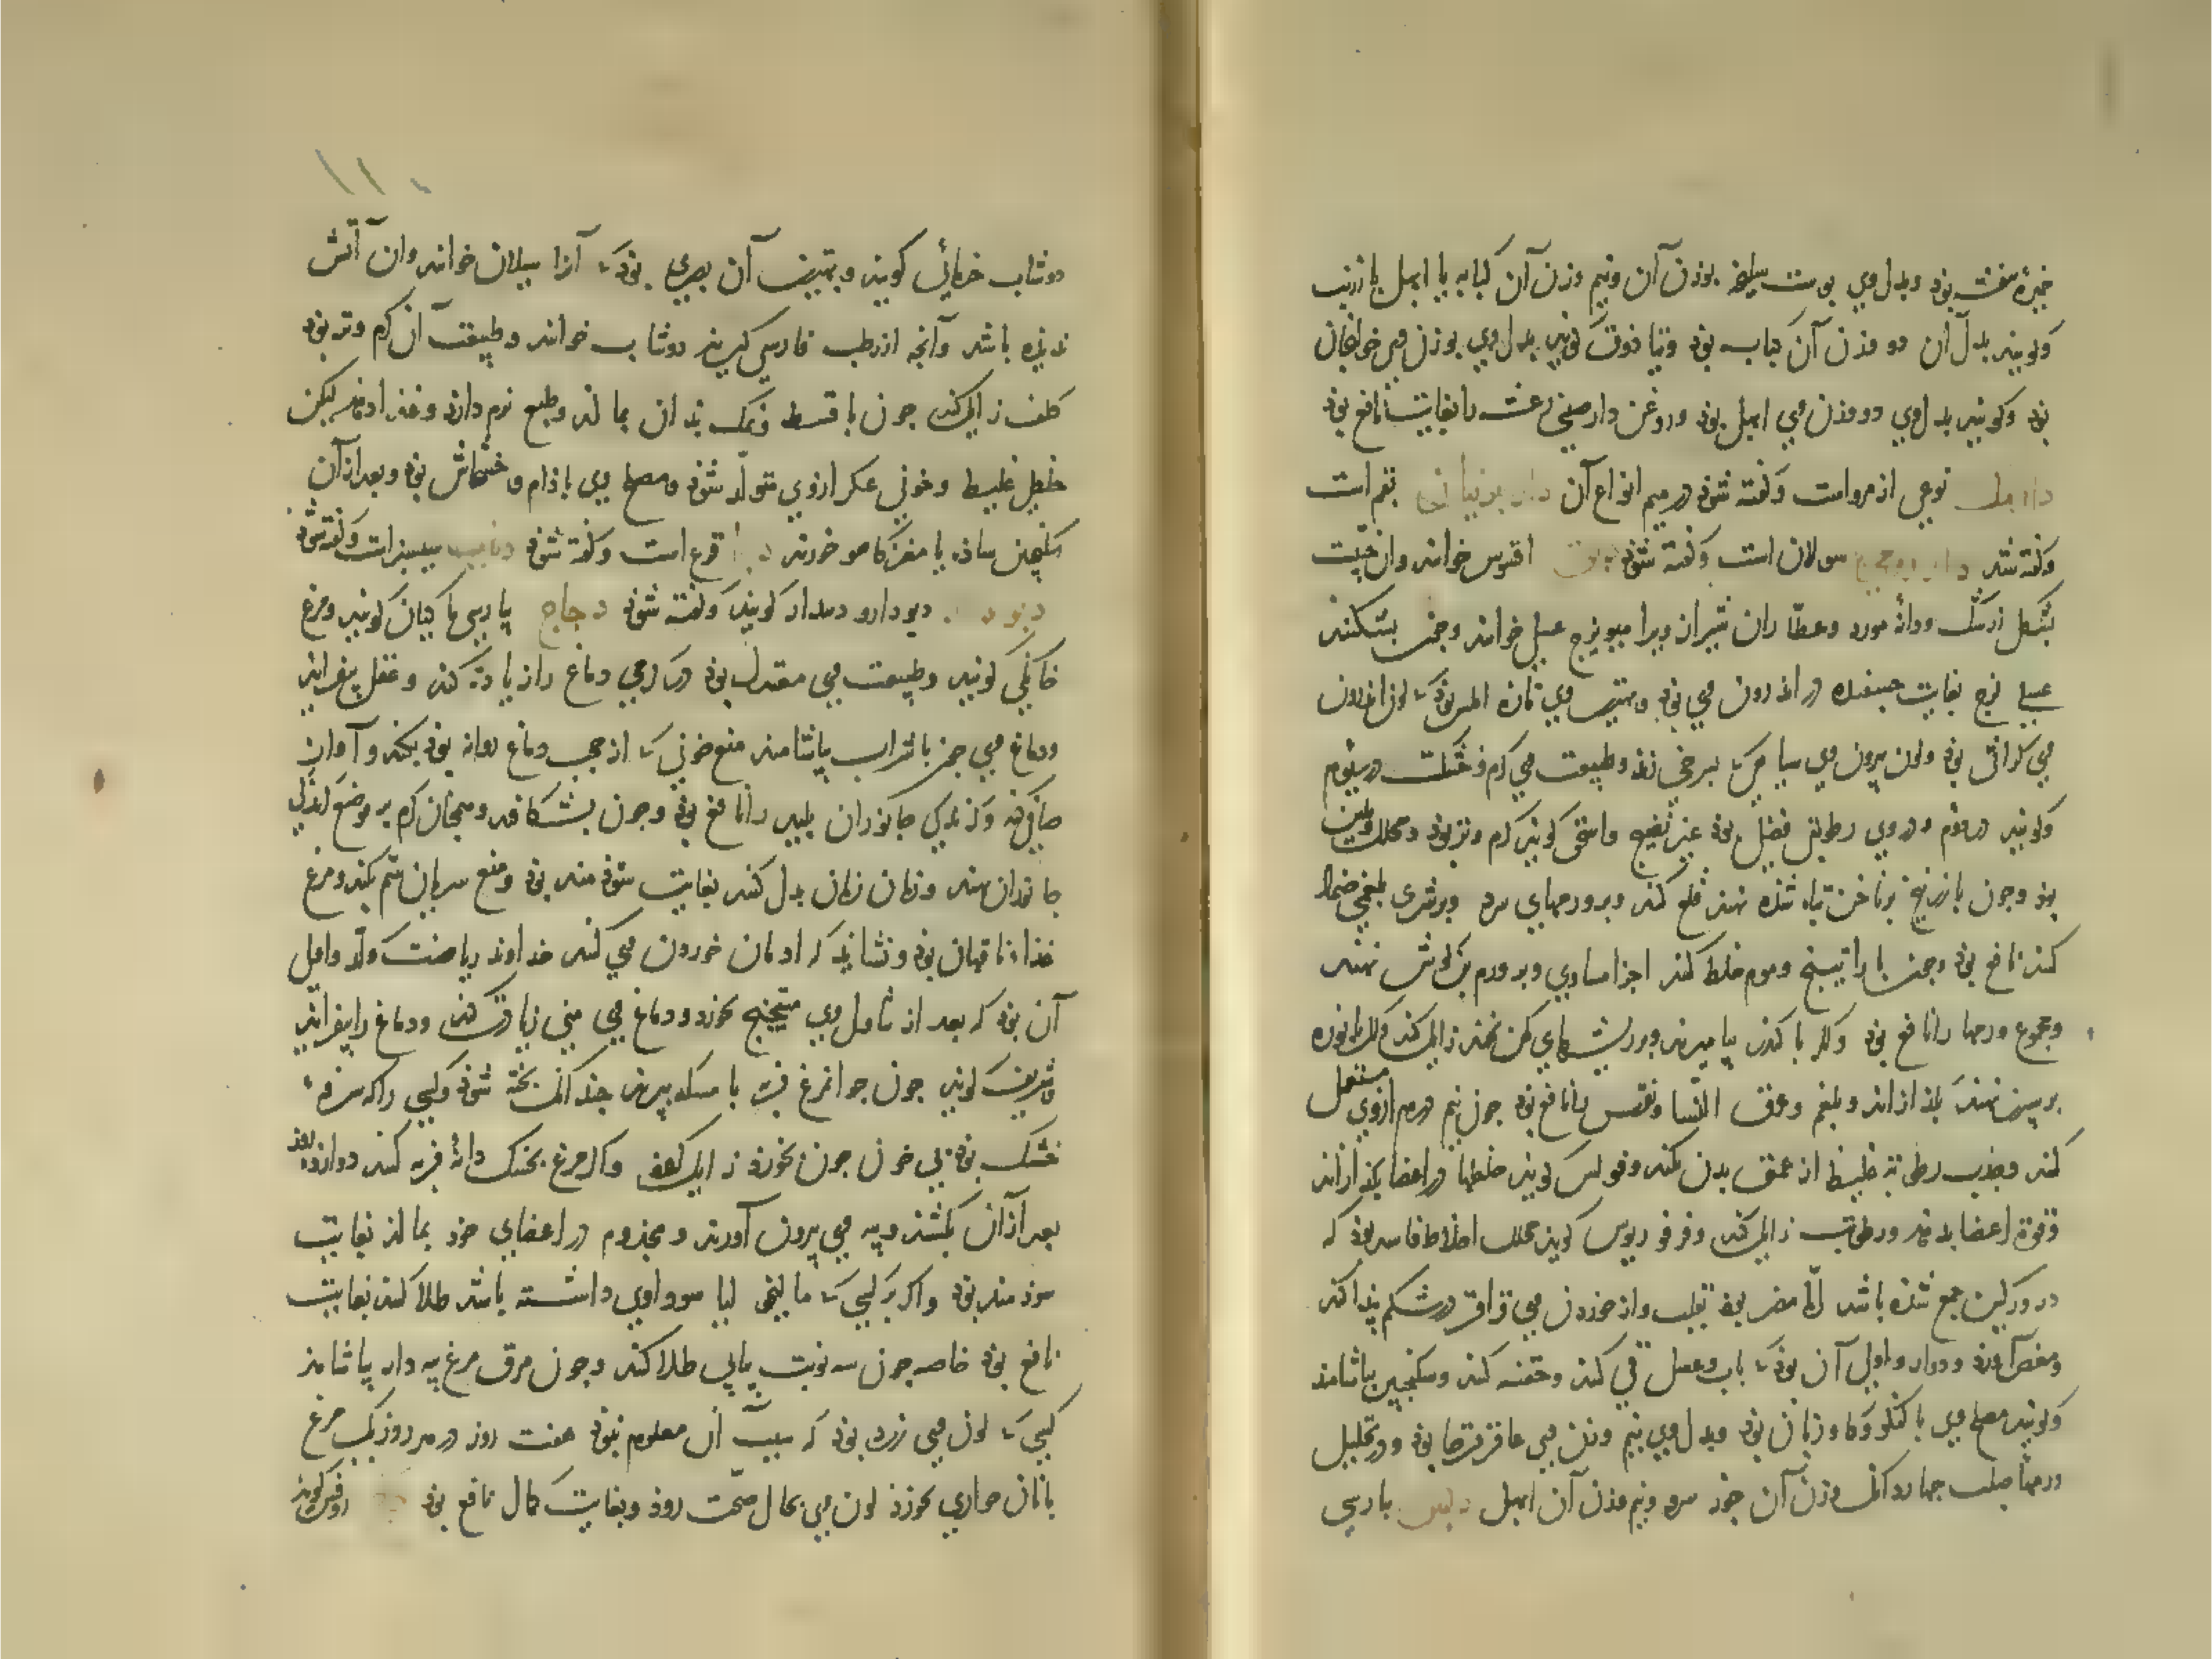 خیره سفت بود و بدل وی پوست سلیخه بوزن آن و نیم وزن آن کبابه یا ابهل یا زرنب
و گویند بدل آن دو وزن آن کبابه بود و تیاذوق گوید بدل وی بوزن وی خولنجان
بود و گویند بدل وی دو وزن وی ابهل بود و روغن دارصینی رعشه را بغایت نافع بود
نوعی از مرو است و گفته شود در میم انواع آن بقم است
و گفته شد سولان است و گفته شود دبق اقسوس خوانند و آن حبیست
بشکل از نک و دانه مورد و عطاران شیراز ویرا میویزج عسلی خوانند و چون بشکنند
عسلی لزج بغایت چسبنده در اندرون وی بود و بهترین وی تازه املس بود که لون اندرون
وی کراثی بود و لون بیرون وی سیاهی که بسرخی زند و طبیعت وی گرم و خشکست در سیوم
و گویند در دوم و در وی رطوبتی فضلی بود غیر نضیج و اسحق گوید گرم و تر بود و محلل و ملین
بود و چون با زرنیخ بر ناخن تباه شده نهند قلع کند و بر ورمهای سرد و بر شری بلغمی ضماد
کنند نافع بود و چون با راتینج و موم خلط کنند اجزا مساوی و بر ورم بن گوش نهند
و مجموع ورمها را نافع بود و اگر با کندر بیامیزند و بر ریشهای کهن نهند زایل کند و اگر با نوره
بر سپرز نهند بگدازاند و بلغم و عرق النسا و نقرس را نافع بود چون نیم درم از وی مستعمل
کنند و جذب رطوبة غلیظ از عمق بدن بکند و فولس گوید خلطها در اعضا بگدازاند
و قوة اعضا بدهد و رطوبت زایل کند و فرفوریوس گوید محلل اخلاط فاسد بود که
در ورکین جمع شده باشد اما مضر بود بقلب و از خوردن وی قراقر در شکم پیدا کند
و مغص آورد و دوار و اولی آن بود که بآب و عسل قی کنند و حقنه کنند و سکنجبین بیاشامند
و گویند مصلح وی با کنکر و گاوزبان بود و بدل وی نیم وزن وی عاقرقرحا بود و در تحلیل
ورمها صلب چهار دانک وزن آن جوز سرو و نیم وزن آن ابهل دبس بپارسی
۱۱۰
دوشاب خرمائی گویند و بهترین آن بصری بود که آنرا سیلان خوانند و آن آتش
ندیده باشد و آنچه از رطب فارسی گیرند دوشاب خوانند و طبیعت آن گرم و تر بود
کلف زایل کند چون با قسط و نمک بدان بمالند و طبع نرم دارد و غذا دهد لیکن
خلطی غلیظ و خونی عکر از وی متولد شود و مصلح وی بادام و خشخاش بود و بعد از آن
سکنجبین ساده یا مغز کاهو خورند دبا قرع است و گفته شود سیسبز است و گفته شود
دیودار و دیودار گویند و گفته شود دجاج پارسی ماکیان گویند و مرغ
خانگی گویند و طبیعت وی معتدل بود در گرمی دماغ را زیادة کند و عقل بیفزاید
و دماغ وی چون با شراب بیاشامند منع خونی که از حجب دماغ روانه بود بکند و آواز
صافی کند و گزندگی جانوران پلید را نافع بود و چون بشکافند و همچنان گرم بر موضع گزندگی
جانوران نهند و زمان زمان بدل کنند بغایت سودمند بود و منع سریان سم بکند و مرغ
غذاء ناقهان بود و نشاید که ادمان خوردن وی کنند خداوند ریاضت و کد و اولی
آن بود که بعد از تناول وی میفختج بخورد و دماغ وی منی زیادت کند و دماغ را بیفزاید
و شریف گوید چون جوانمرغ فربه با مسکه بپزند چندانک پخته شود و کسی را که سرفه
خشک بود بی خون چون بخورد زایل کند و اگر مرغ بخسک دانه فربه کنند دوازده روز
بعد از آن بکشند و پیه وی بیرون آورند و مجذوم در اعضای خود بمالد بغایت
سودمند بود و اگر بر کسی که مالیخولیا سوداوی داشته باشد طلا کنند بغایت
نافع بود خاصه چون سه نوبت پیاپی طلا کند و چون مرق مرغ پیه دار بیاشامند
کسی که لون وی زرد بود که سبب آن معلوم نبود هفت روز در هر روز یک مرغ
با نان حواری بخورد لون وی بحال صحت رود و بغایت کمال نافع بود